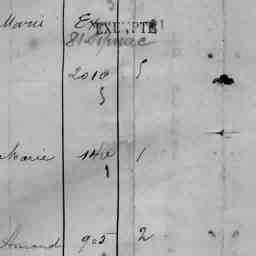 Marie Ex EXEMPTÉ
2010 5
3
Marie 140 1
1
Armand 905 2